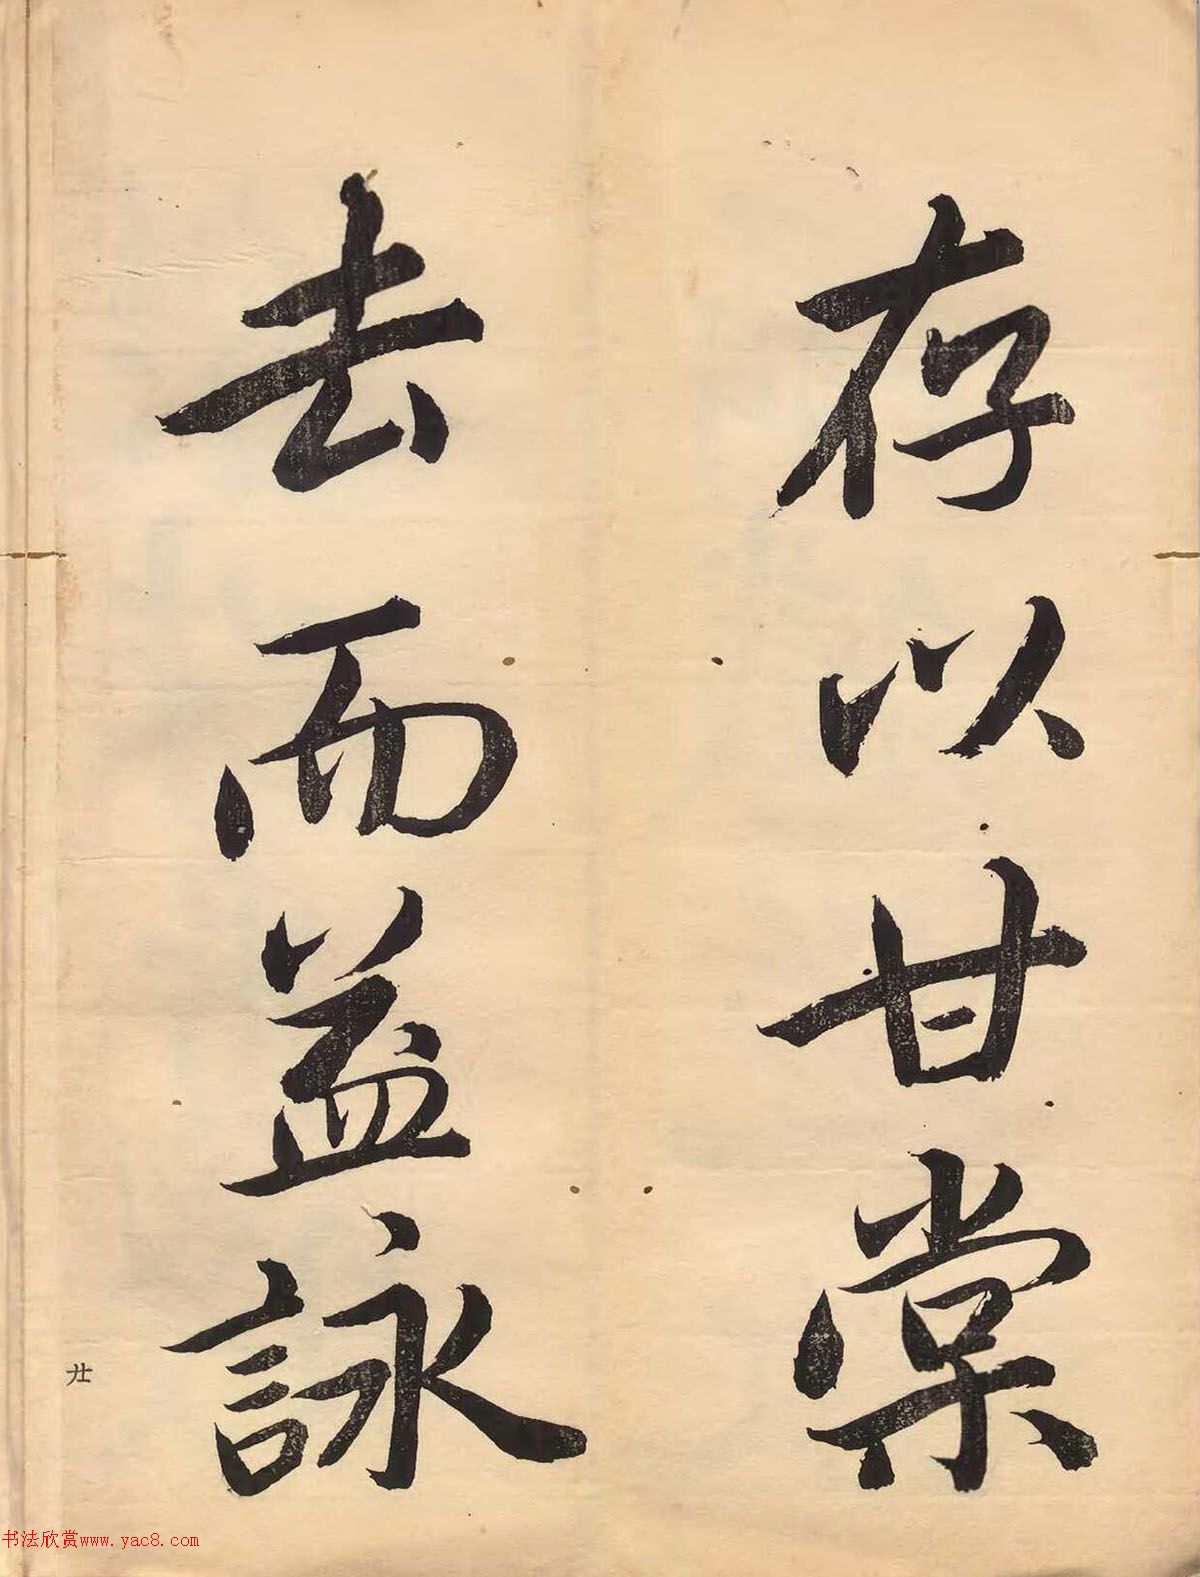 存以甘棠
去而益詠
廿
书法欣赏www.yac8.com